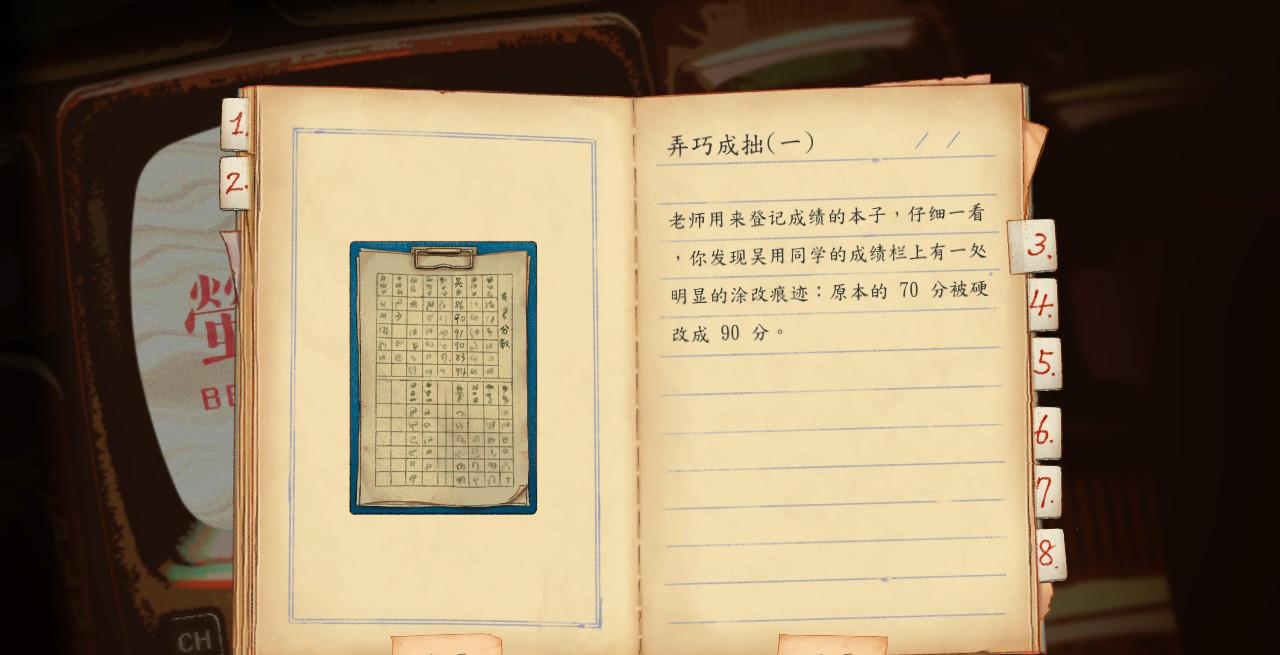 1.
2.
螢
BE
CH
吴
86
90
91
90
83
94
分
数
弄巧成拙(一) / /
老师用来登记成绩的本子，仔细一看
，你发现吴用同学的成绩栏上有一处
明显的涂改痕迹：原本的 70 分被硬
改成 90 分。
3.
4.
5.
6.
7.
8.